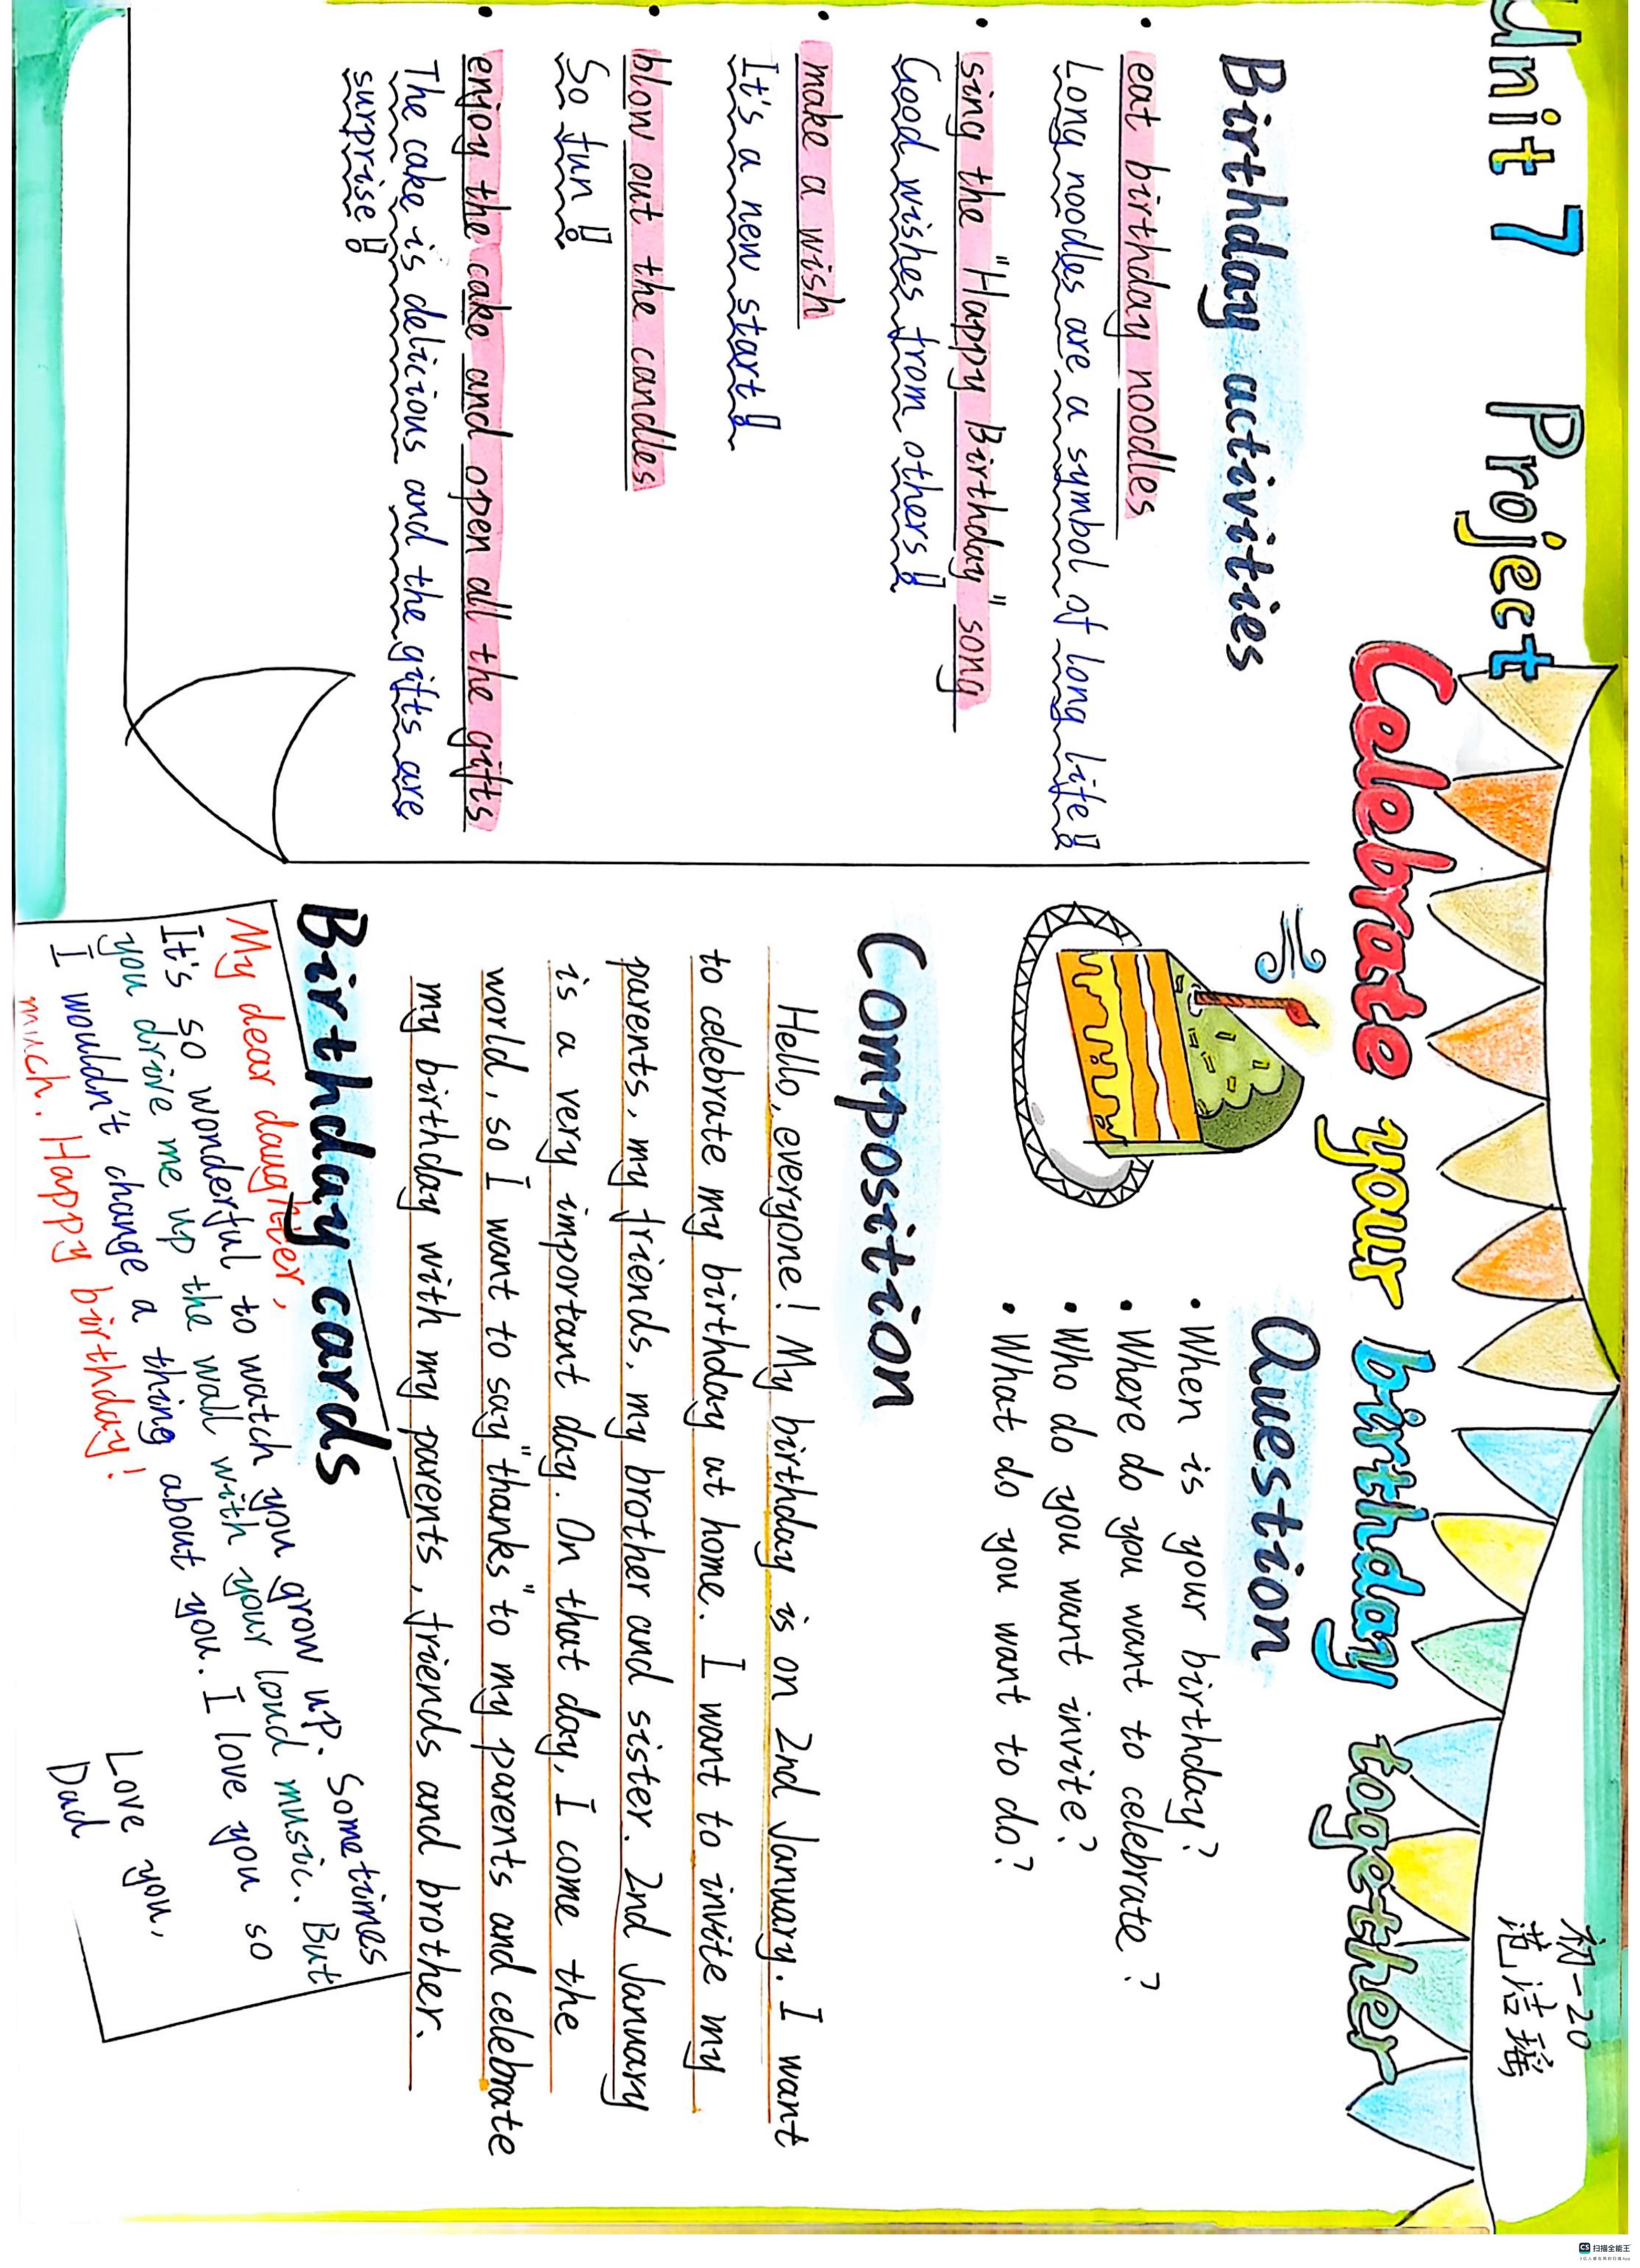 Unit 7 Project
初一20
范洁瑶
Celebrate your birthday together
Birthday activities
• eat birthday noodles
Long noodles are a symbol of long life!
• sing the "Happy Birthday" song
Good wishes from others!
• make a wish
It's a new start!
• blow out the candles
So fun!
• enjoy the cake and open all the gifts
The cake is delicious and the gifts are
surprise!
Question
• When is your birthday?
• Where do you want to celebrate?
• Who do you want invite?
• What do you want to do?
Composition
Hello, everyone! My birthday is on 2nd January. I want
to celebrate my birthday at home. I want to invite my
parents, my friends, my brother and sister. 2nd January
is a very important day. On that day, I come the
world, so I want to say "thanks" to my parents and celebrate
my birthday with my parents, friends and brother.
Birthday cards
My dear daughter,
It's so wonderful to watch you grow up. Sometimes
you drive me up the wall with your loud music. But
I wouldn't change a thing about you. I love you so
much. Happy birthday!
Love you,
Dad
CS 扫描全能王
3亿人都在用的扫描App